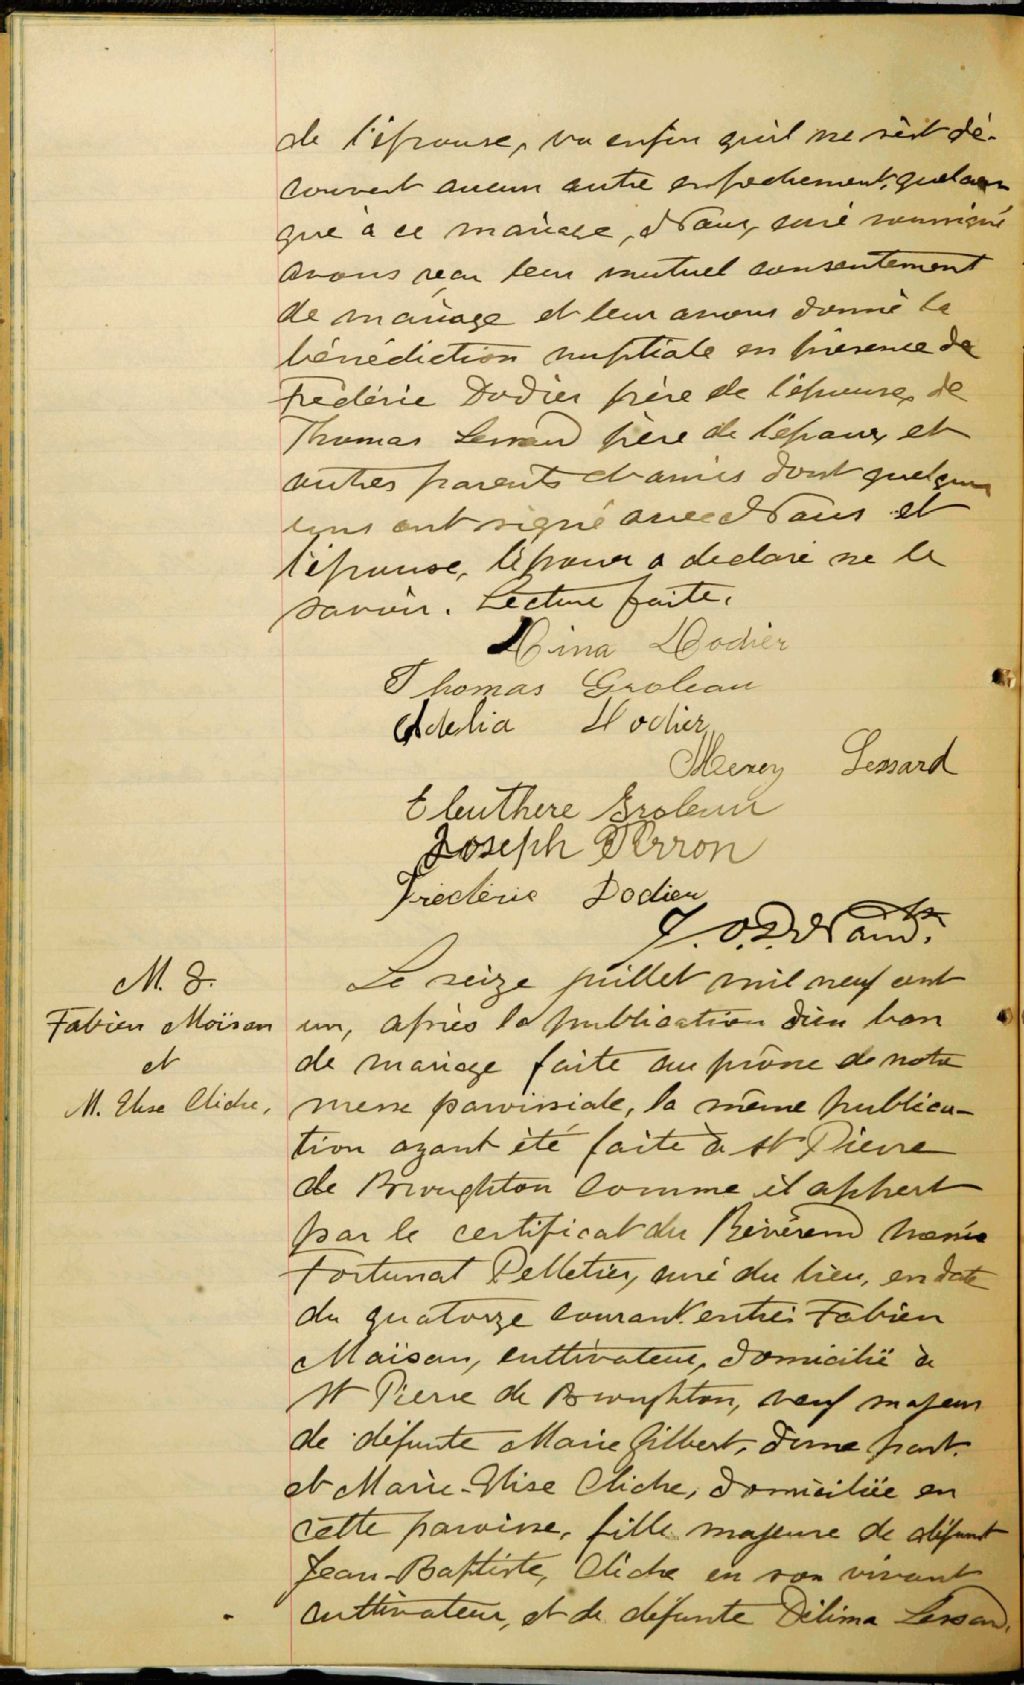 de l'épouse, vu enfin qu'il ne s'est dé-
couvert aucun autre empêchement quelcon
que à ce mariage, Nous, curé soussigné
avons reçu leur mutuel consentement
de mariage et leur avons donné la
bénédiction nuptiale en présence de
Frédéric Dodier frère de l'épouse, de
Thomas Lessard père de l'époux et
autres parents et amis dont quelques
uns ont signé avec Nous et
l'épouse, l'époux a declaré ne le
savoir. Lecture faite.
Dina Dodier
Thomas Groleau
Adelia Dodier
Merey Lessard
Eleuthere Groleau
Joseph Perron
Frédéric Dodier
M. 8.
Fabien Moïsan
et
M. Elise Cliche,
Le seize juillet mil neuf cent
un, après la publication d'un ban
de mariage faite au prône de notre
messe paroissiale, la même publica-
tion ayant été faite à St Pierre
de Broughton comme il appert
par le certificat du Révérend
Fortunat Pelletier, curé du lieu, en date
du quatorze courant entre Fabien
Moïsan, cultivateur, domicilié à
St Pierre de Broughton, veuf majeur
de défunte Marie Gilbert, d'une part.
et Marie-Elise Cliche, domiciliée en
cette paroisse, fille majeure de défunt
Jean-Baptiste, Cliche en son vivant
cultivateur, et de défunte Délima Lessard,